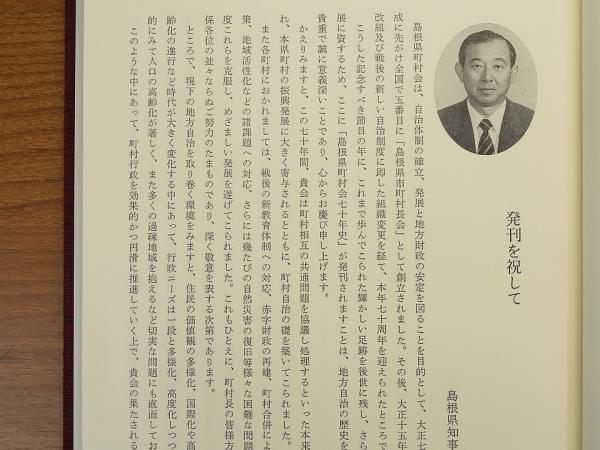 発刊を祝して
島根県知事
島根県町村会は、自治体制の確立、発展と地方財政の安定を図ることを目的として、大正七
成に先がけ全国で五番目に「島根県市町村長会」として創立されました。その後、大正十五年
改組及び戦後の新しい自治制度に即した組織変更を経て、本年七十周年を迎えられたところで
こうした記念すべき節目の年に、これまで歩んでこられた輝かしい足跡を後世に残し、さら
展に資するため、ここに「島根県町村会七十年史」が発刊されますことは、地方自治の歴史を
貴重で誠に意義深いことであり、心からお慶び申し上げます。
かえりみますと、この七十年間、貴会は町村相互の共通問題を協議し処理するといった本来
れ、本県町村の振興発展に大きく寄与されるとともに、町村自治の礎を築いてこられました。
また各町村におかれましては、戦後の新教育体制への対応、赤字財政の再建、町村合併によ
策、地域活性化などの諸課題への対応、さらには幾たびの自然災害の復旧等様々な困難な問題
度これらを克服し、めざましい発展を遂げてこられました。これもひとえに、町村長の皆様方
係各位の並々ならぬご努力のたまものであり、深く敬意を表する次第であります。
ところで、現下の地方自治を取り巻く環境をみますと、住民の価値観の多様化、国際化や高
齢化の進行など時代が大きく変化する中にあって、行政ニーズは一段と多様化、高度化しつつ
的にみて人口の高齢化が著しく、また多くの過疎地域を抱えるなど切実な問題にも直面してお
このような中にあって、町村行政を効果的かつ円滑に推進していく上で、貴会の果たされる